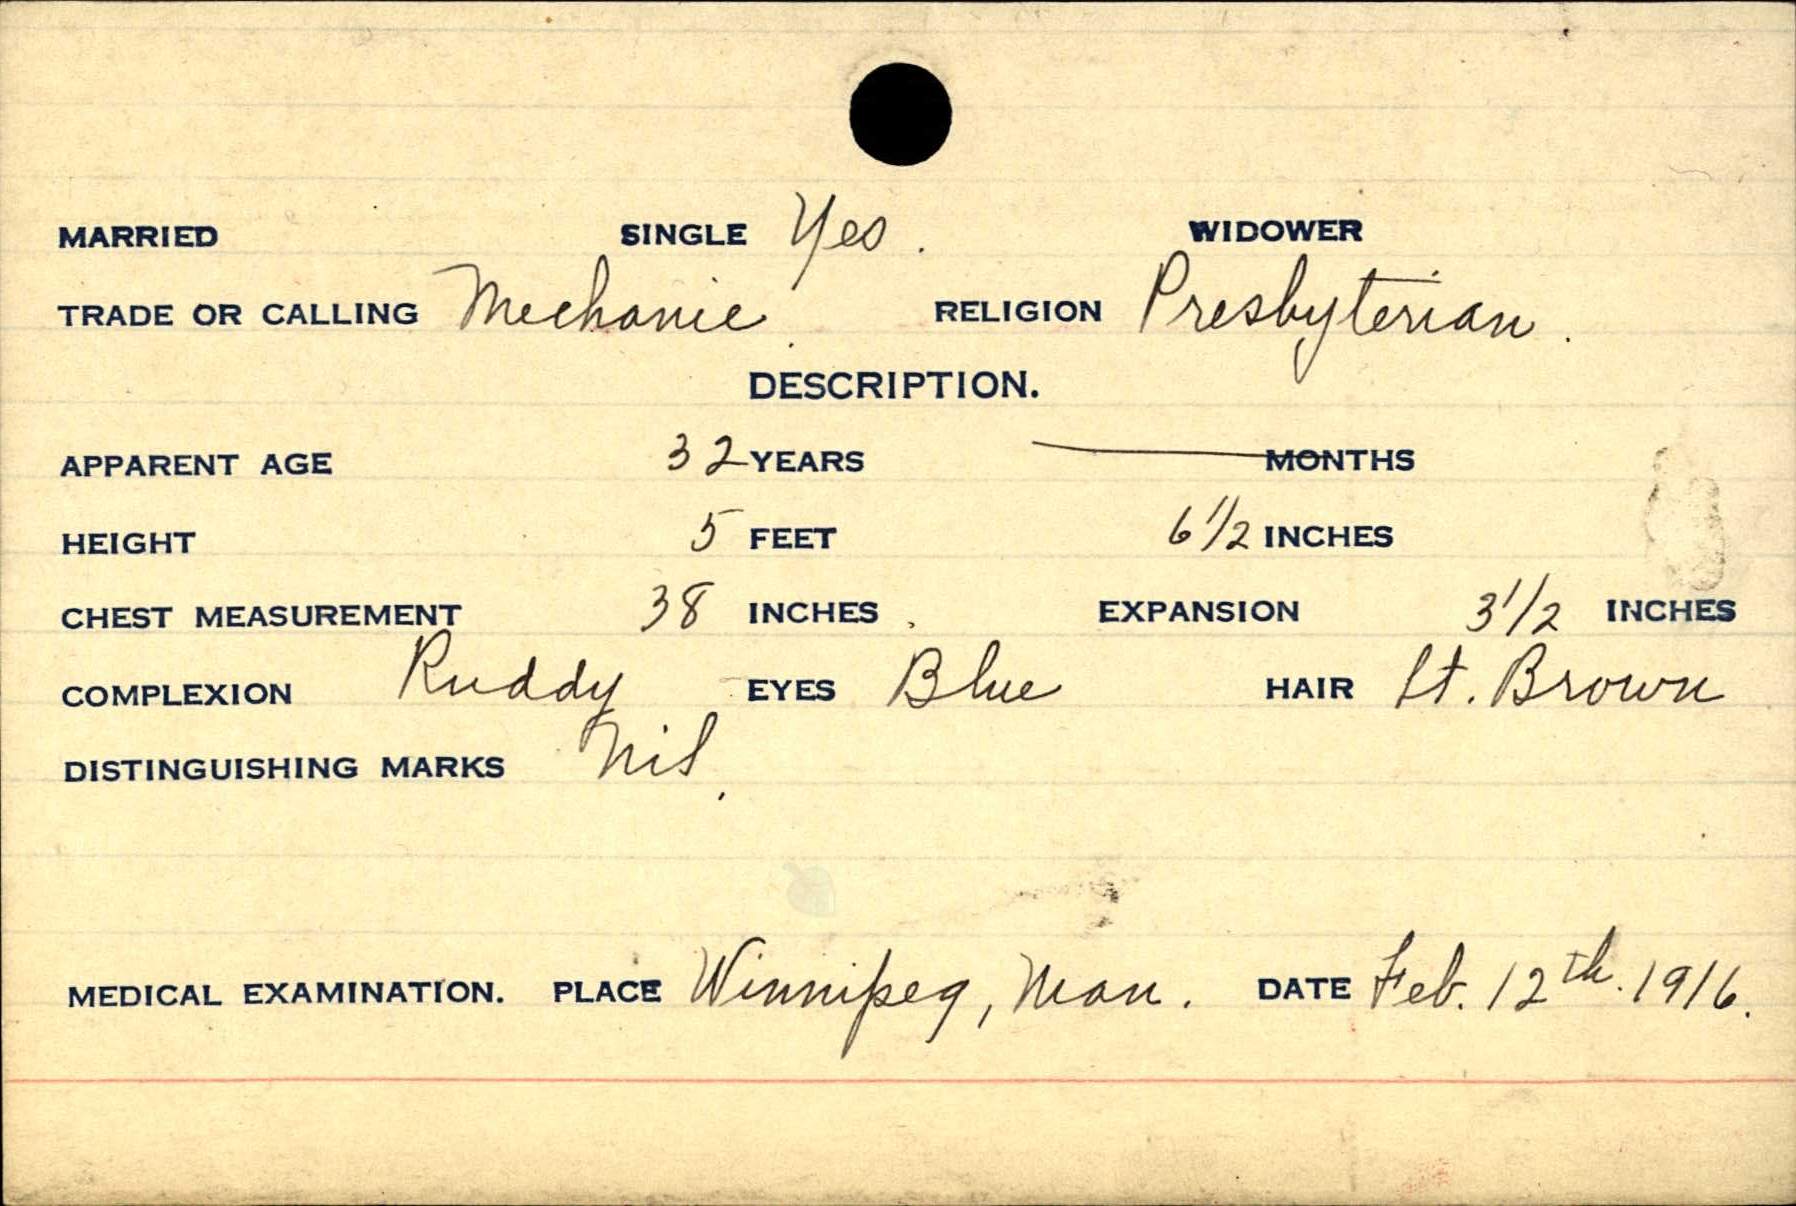 MARRIED SINGLE Yes. WIDOWER
TRADE OR CALLING Mechanic. RELIGION Presbyterian.
DESCRIPTION.
APPARENT AGE 32 YEARS — MONTHS
HEIGHT 5 FEET 6 1/2 INCHES
CHEST MEASUREMENT 38 INCHES. EXPANSION 3 1/2 INCHES
COMPLEXION Ruddy EYES Blue HAIR Lt. Brown
DISTINGUISHING MARKS Nil.
MEDICAL EXAMINATION. PLACE Winnipeg, Man. DATE Feb. 12th. 1916.